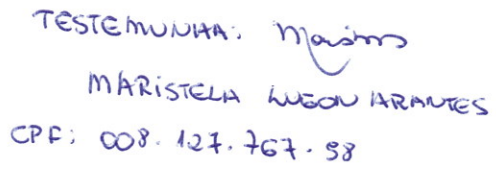 TESTEMUNHA:
MARISTELA LUGON ARANTES
CPF: 008.127.767.98